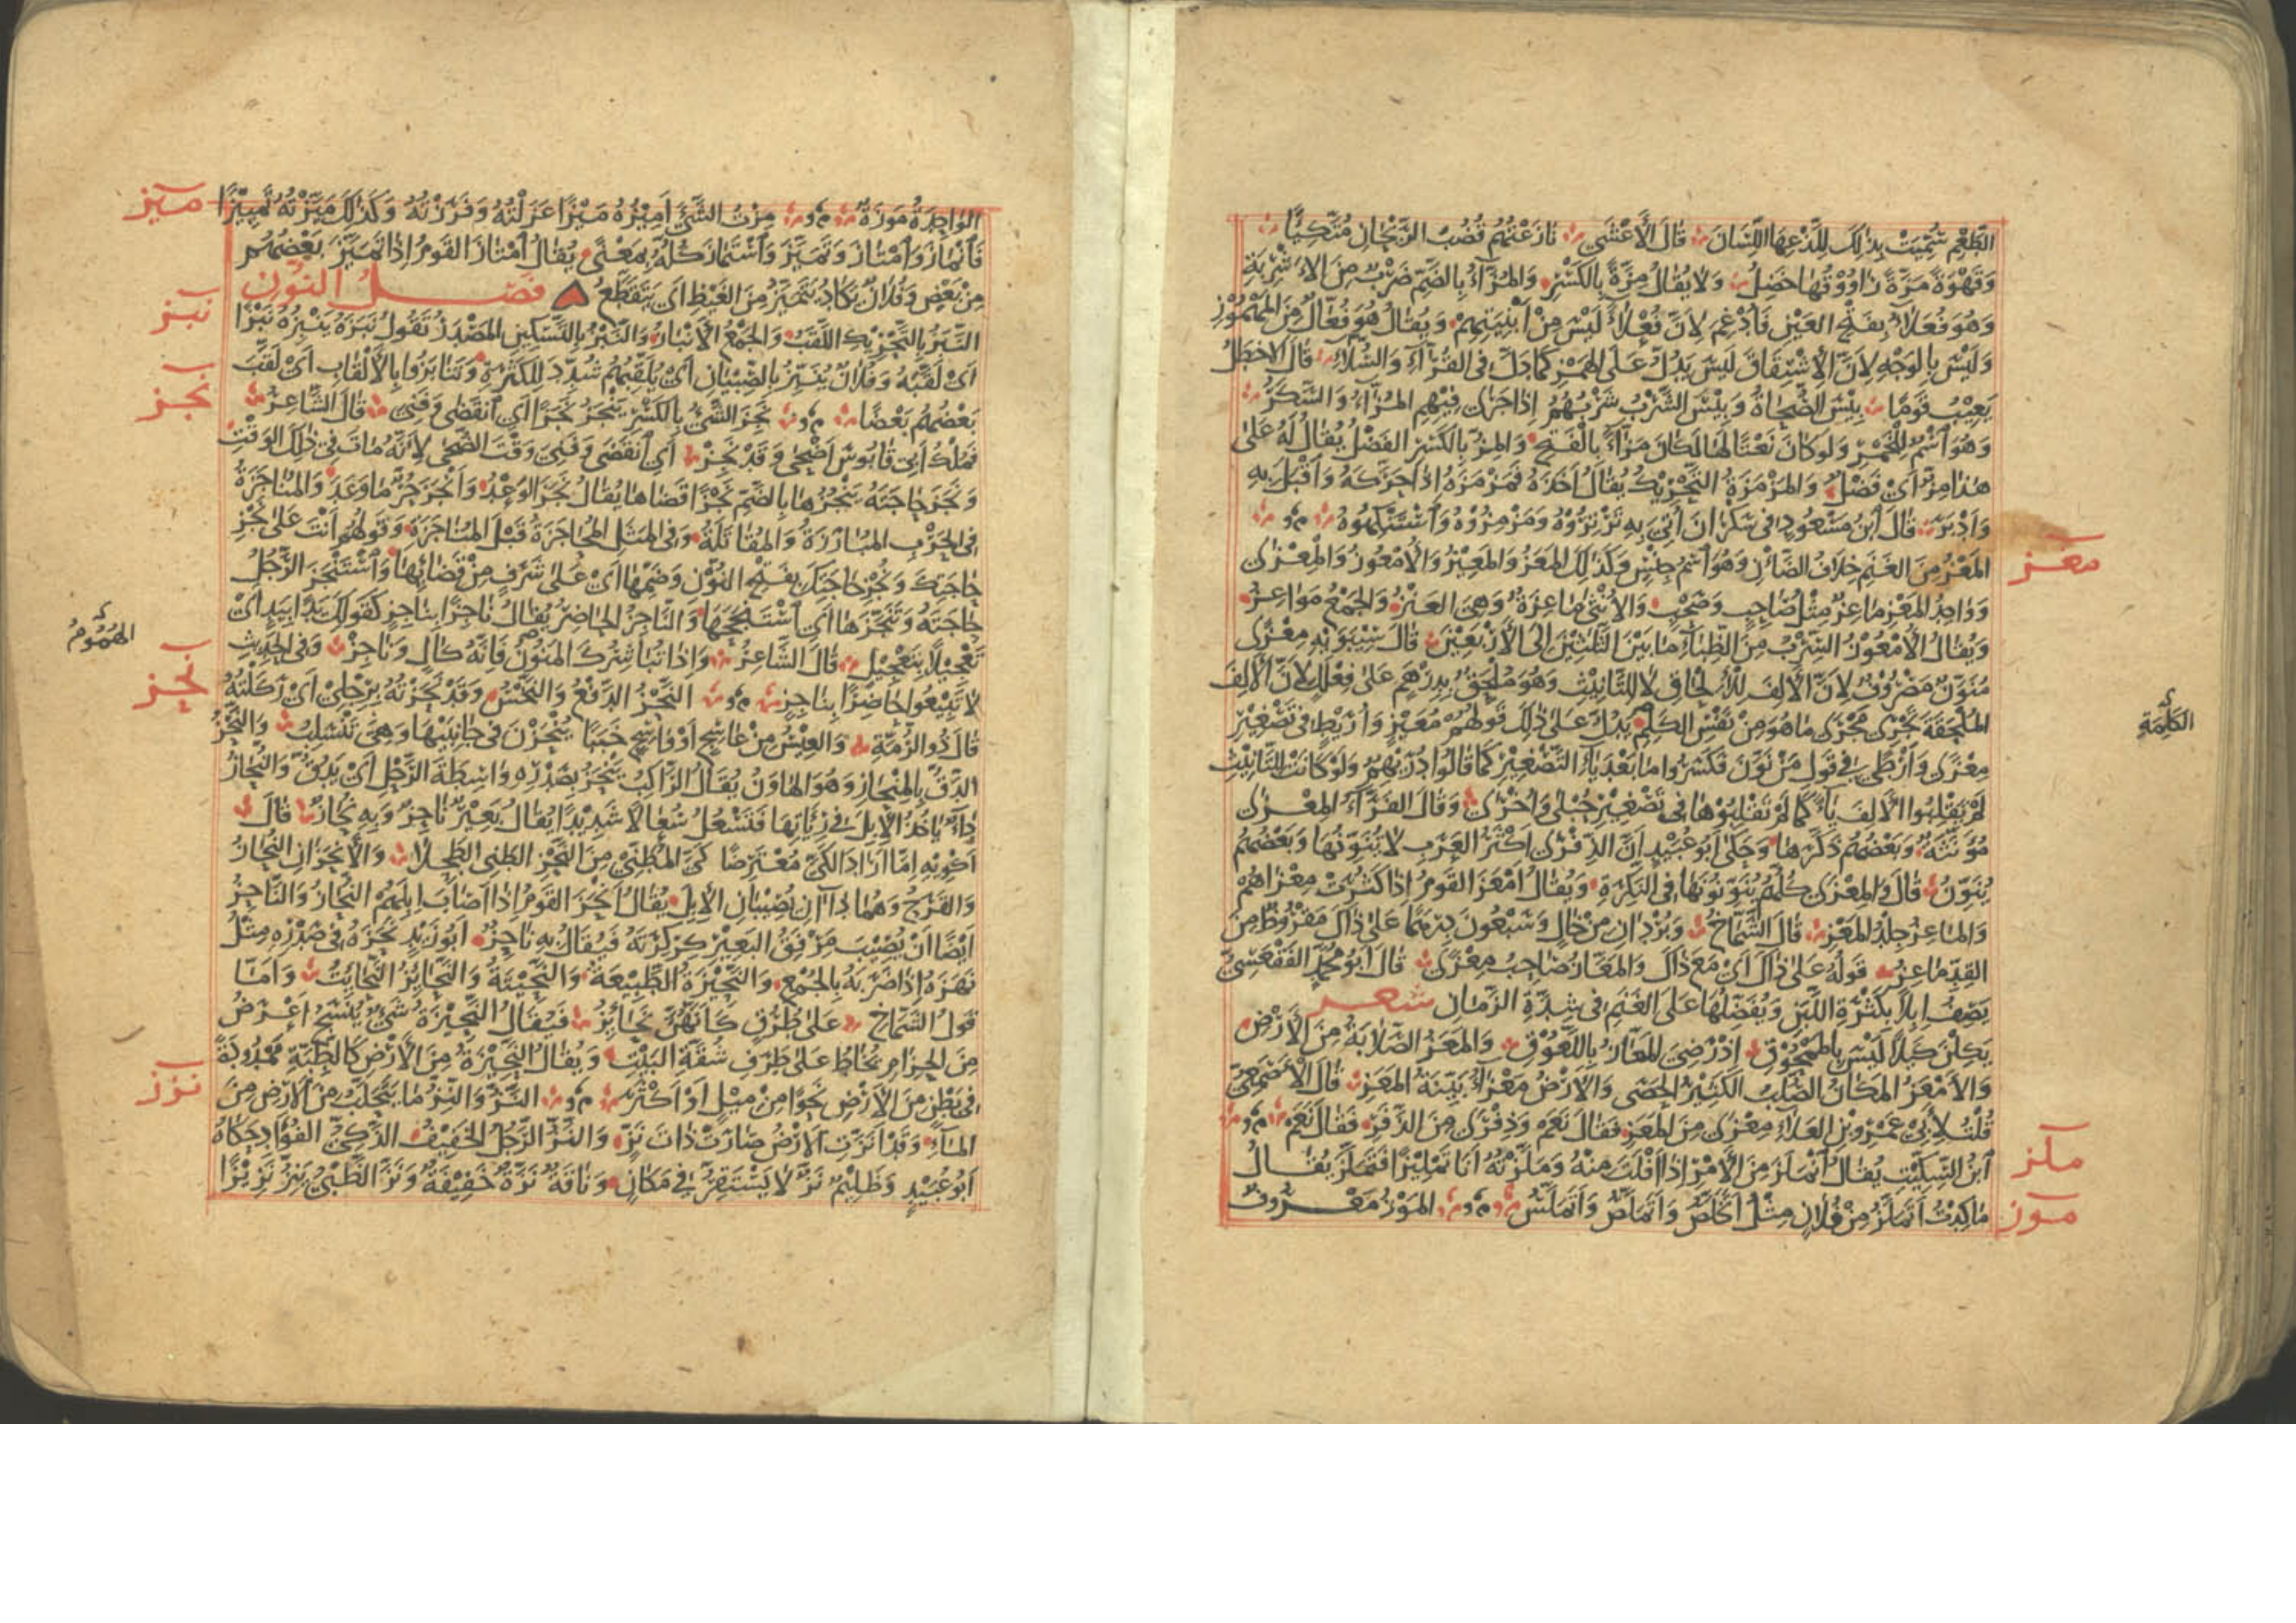 الطَّعْمِ سُمِّيَتْ بِذٰلِكَ لِلَذْعِهَا اللِّسَانَ قَالَ الْأَعْشَى نَازَعْتُهُمْ قُضُبَ الرَّيْحَانِ مُتَّكِئًا
وَقَهْوَةً مُزَّةً رَاوُوقُهَا خَضِلُ وَلَا يُقَالُ مِزَّةٌ بِالكَسْرِ وَالمُزَّاءُ بِالضَّمِّ ضَرْبٌ مِنَ الأَشْرِبَةِ
وَهُوَ فُعَلَاءُ بِفَتْحِ العَيْنِ فَأُدْغِمَ لِأَنَّ فُعْلَاءَ لَيْسَ مِنْ أَبْنِيَتِهِمْ وَيُقَالُ هُوَ فُعَّالٌ مِنَ المَهْمُوْزِ
وَلَيْسَ بِالوَجْهِ لِأَنَّ الِاشْتِقَاقَ لَيْسَ يَدُلُّ عَلَى الهَمْزِ كَمَا دَلَّ فِى القُرَّاءِ وَالسُّلَّاءِ قَالَ الاخطَلُ
يَعِيْبُ قَوْمًا بِئْسَ الصُّحَاةُ وَبِئْسَ الشَّرْبُ شَرْبُهُمُ إِذَا جَرَى فِيْهِمِ المُزَّاءُ وَالسَّكَرُ
وَهُوَ اسْمٌ لِلْخَمْرِ وَلَو كَانَ نَعْتًا لَهَا لَكَانَ مَزَّاءَ بِالْفَتْحِ وَالمِزُّ بِالكَسْرِ الفَضْلُ يُقَالُ لَهُ عَلَى
هٰذَا مِزٌّ أَيْ فَضْلٌ وَالمَزْمَزَةُ التَّحْرِيْكُ يُقَالُ أَخَذَهُ فَمَزْمَزَهُ إِذَا حَرَّكَهُ وَأَقْبَلَ بِهِ
وَأَدْبَرَ قَالَ ابْنُ مَسْعُودٍ فى سَكْرَانَ أُتِيَ بِهِ تَرْتِرُوْهُ وَمَزْمِزُوْهُ وَاسْتَنْكِهُوهُ
المَعْزُ مِنَ الغَنَمِ خِلَافُ الضَّأْنِ وَهُوَ اسْمُ جِنْسٍ وَكَذٰلِكَ المَعَزُ وَالمَعِيْزُ وَالأُمْعُوزُ وَالْمِعْزٰى
وَوَاحِدُ المَعْزِ مَاعِزٌ مِثْلُ صَاحِبٍ وَصَحْبٍ وَالأُنْثٰى مَاعِزَةٌ وَهِيَ العَنْزُ وَالجَمْعُ مَوَاعِزُ
وَيُقَالُ الأُمْعُوْزُ السِّرْبُ مِنَ الظِّبَاءِ مَا بَيْنَ الثَّلٰثِيْنَ اِلَى الأَرْبَعِيْنَ قَالَ سِيْبَوَيْهِ مِعْزًى
مُنَوَّنٌ مَصْرُوْفٌ لِأَنَّ الأَلِفَ لِلْإِلْحَاقِ لَا لِلتَّأْنِيْثِ وَهُوَ مُلْحَقٌ بِدِرْهَمٍ عَلٰى فِعْلَلٍ لِأَنَّ الأَلِفَ
المُلْحِقَةَ تَجْرِى مَجْرَى مَا هُوَ مِنْ نَفْسِ الكَلِمِ يَدُلُّ عَلٰى ذٰلِكَ قَوْلُهُمْ مُعَيْزٍ وَأُرَيْطٍ فِى تَصْغِيْرِ
الكَلِمَةِ
مِعْزًى وَأَرْطًى فِي قَولِ مَنْ نَوَّنَ فَكَسَرُوا مَا بَعْدَ يَاءِ التَّصْغِيْرِ كَمَا قَالُوا دُرَيْهِمٌ وَلَوْ كَانَتْ لِلتَّأْنِيْثِ
لَمْ يَقْلِبُوا الأَلِفَ يَاءً كَمَا لَمْ تَقْلِبُوْهَا فِى تَصْغِيْرِ حُبْلٰى وَأُخْرٰى وَقَالَ الفَرَّاءُ المِعْزٰى
مُؤَنَّثَةٌ وَبَعْضُهُمْ ذَكَّرَهَا وَحَكٰى أَبُو عُبَيْدٍ أَنَّ الذِّفْرٰى أَكْثَرُ العَرَبِ لَا يُنَوِّنُهَا وَبَعْضُهُمْ
يُنَوِّنُ قَالَ وَالمِعْزٰى كُلُّهُمْ يُنَوِّنُونَهَا فِى النَّكِرَةِ وَيُقَالُ أَمْعَزَ القَوْمُ إِذَا كَثُرَتْ مِعْزَاهُمْ
وَالمَاعِزُ جِلْدُ المَعْزِ قَالَ الشَّمَّاخُ وَبُرْدَانِ مِنْ خَالٍ وَسَبْعُونَ دِرْهَمًا عَلٰى ذَاكَ مَقْرُوْظٌ مِنَ
القِدِّ مَاعِزُ قَوْلُهُ عَلٰى ذَاكَ أَيْ مَعَ ذَاكَ وَالمَعَّازُ صَاحِبُ مِعْزًى قَالَ أَبُو مُحَمَّدٍ الفَقْعَسِيُّ
يَصِفُ اِبِلًا بِكَثْرَةِ اللَّبَنِ وَيُفَضِّلُهَا عَلَى الغَنَمِ فِى شِدَّةِ الزَّمَانِ شعر
يَكِلْنَ كَيْلًا لَيْسَ بِالمَمْحُوْقِ اِذْ رَضِيَ المَعَّازُ بِاللَّعُوْقِ وَالمَعَزُ الصَّلَابَةُ مِنَ الأَرْضِ
وَالأَمْعَزُ المَكَانُ الصُّلْبُ الكَثِيْرُ الحَصٰى وَالأَرْضُ مَعْزَاءُ بَيِّنَةُ المَعَزِ قَالَ الأَصْمَعِيُّ
قُلْتُ لِأَبِيْ عَمْرِو بْنِ العَلَاءِ مِعْزٰى مِنَ المَعَزِ فَقَالَ نَعَمْ وَذِفْرٰى مِنَ الذَّفَرِ فَقَالَ نَعَمْ
ابْنُ السِّكِّيْتِ يُقَالُ انْمَلَزَ مِنَ الأَمْرِ إِذَا أَفْلَتَ مِنْهُ وَمَلَّزْتُهُ أَنَا تَمْلِيْزًا فَتَمَلَّزَ يُقَالُ
مَا كِدْتُ أَتَمَلَّزُ مِنْ فُلَانٍ مِثْلُ أَتَخَلَّصُ وَأَتَمَلَّصُ وَأَتَمَلَّسُ المَوْزُ مَعْرُوفٌ
معز
ملز
موز
الوَاحِدَةُ مَوْزَةٌ مِزْتُ الشَّيْئَ أَمِيْزُهُ مَيْزًا عَزَلْتُهُ وَفَرَزْتُهُ وَكَذٰلِكَ مَيَّزْتُهُ تَمْيِيْزًا
فَانْمَازَ وَامْتَازَ وَتَمَيَّزَ وَاسْتَمَازَ كُلُّهُ بِمَعْنًى يُقَالُ امْتَازَ القَوْمُ إِذَا تَمَيَّزَ بَعْضُهُمْ
مِنْ بَعْضٍ وَفُلَانٌ يَكَادُ يَتَمَيَّزُ مِنَ الغَيْظِ أَيْ يَتَقَطَّعُ فصل النون
النَّبَزُ بِالتَّحْرِيْكِ اللَّقَبُ وَالجَمْعُ الأَنْبَازُ وَالنَّبْزُ بِالتَّسْكِيْنِ المَصْدَرُ تَقُولُ نَبَزَهُ يَنْبِزُهُ نَبْزًا
أَيْ لَقَّبَهُ وَفُلَانٌ يُنَبِّزُ بِالصِّبْيَانِ أَيْ يُلَقِّبُهُمْ شُدِّدَ لِلكَثْرَةِ وَتَنَابَزُوا بِالأَلْقَابِ أَيْ لَقَّبَ
بَعْضُهُمْ بَعْضًا نَجِزَ الشَّيْئُ بِالكَسْرِ يَنْجَزُ نَجَزًا أَيِ انْقَضٰى وَفَنِيَ قَالَ الشَّاعِرُ
فَمُلْكُ أَبِى قَابُوسَ أَضْحٰى وَقَدْ نَجِزْ أَيِ انْقَضَى وَفَنِيَ وَقْتَ الضُّحٰى لِأَنَّهُ مَاتَ فِي ذٰلِكَ الوَقْتِ
وَنَجَزَ حَاجَتَهُ يَنْجُزُهَا بِالضَّمِّ نَجْزًا قَضَاهَا يُقَالُ نَجَزَ الوَعْدُ وَأَنْجَزَ حُرٌّ مَا وَعَدَ وَالمُنَاجَزَةُ
فِى الحَرْبِ المُبَارَزَةُ وَالمُقَاتَلَةُ وَفِى المَثَلِ المُحَاجَزَةُ قَبْلَ المُنَاجَزَةِ وَقَولُهُمْ أَنْتَ عَلٰى نَجْزِ
حَاجَتِكَ وَنُجْزِ حَاجَتِكَ بِفَتْحِ النُّوْنِ وَضَمِّهَا أَيْ عَلٰى شَرَفٍ مِنْ قَضَائِهَا وَاسْتَنْجَزَ الرَّجُلُ
حَاجَتَهُ وَتَنَجَّزَهَا أَيِ اسْتَنْجَحَهَا وَالنَّاجِزُ الحَاضِرُ يُقَالُ نَاجِزًا بِنَاجِزٍ كَقَولِكَ يَدًا بِيَدٍ أَيْ
تَعْجِيْلًا بِتَعْجِيْلٍ قَالَ الشَّاعِرُ وَإِذَا تُبَاشِرُكَ المَنُوْنُ فَإِنَّهُ كَالٍ وَنَاجِزْ وَفِى الحَدِيْثِ
الهُمُوْمُ
لَا تَبِيْعُوا حَاضِرًا بِنَاجِزٍ النَّحْزُ الدَّفْعُ وَالنَّخْسُ وَقَدْ نَحَزْتُهُ بِرِجْلِيْ أَيْ رَكَلْتُهُ
قَالَ ذُو الرُّمَّةِ وَالعِيْسُ مِنْ عَاسِجٍ أَوْ وَاسِجٍ خَبَبًا يُنْحَزْنَ فِى جَانِبَيْهَا وَهِيَ تَنْسَلِبُ وَالنَّحْزُ
الدَّقُّ بِالمِنْحَازِ وَهُوَ الهَاوُنُ يُقَالُ الرَّاكِبُ يَنْحَزُ بِصَدْرِهِ وَاسِطَةَ الرَّحْلِ أَيْ يَدُقُّ وَالنُّحَازُ
دَاءٌ يَأخُذُ الإِبِلَ فِي رِئَاتِهَا فَتَسْعُلُ سُعَالًا شَدِيْدًا يُقَالُ بَعِيْرٌ نَاحِزٌ وَبِهِ نُحَازٌ قَالَ
أَكْوِيْهِ اِمَّا أَرَادَ الكَيَّ مُعْتَرِضًا كَيَّ المُطَنِّيْ مِنَ النَّحْزِ الطَّنِى الطَّحِلَا وَالأَنْحَزَانِ النُّحَازُ
وَالقَرَحُ وَهُمَا دَاءَانِ يُصِيْبَانِ الإِبِلَ يُقَالُ أَنْحَزَ القَوْمُ إِذَا أَصَابَ اِبِلَهُمُ النُّحَازُ وَالنَّاحِزُ
أَيْضًا أَنْ يُصِيْبَ مِرْفَقُ البَعِيْرِ كِرْكِرَتَهُ فَيُقَالُ بِهِ نَاحِزٌ أَبُو زَيْدٍ نَحَزَهُ فِى صَدْرِهِ مِثْلُ
نَهَزَهُ إِذَا ضَرَبَهُ بِالجُمْعِ وَالنَّحِيْزَةُ الطَّبِيْعَةُ وَالنَّحِيْتَةُ وَالنَّحَائِزُ النَّحَائِتُ وَأَمَّا
قَولُ الشَّمَّاخِ عَلٰى طُرُقٍ كَأَنَّهُنَّ نَحَائِزُ فَيُقَالُ النَّحِيْزَةُ شَيْئٌ يُنْسَجُ أَعْرَضُ
مِنَ الحِزَامِ يُخَاطُ عَلٰى طَرَفِ شُقَّةِ البَيْتِ وَيُقَالُ النَّحِيْزَةُ مِنَ الأَرْضِ كَالطِّبَّةِ مَمْدُودَةٌ
فِى بَطْنٍ مِنَ الأَرْضِ نَحْوًا مِنْ مِيْلٍ أَوْ أَكْثَرَ النَّزُّ وَالنِّزُّ مَا يَتَحَلَّبُ مِنَ الأَرْضِ مِنَ
المَاءِ وَقَدْ أَنَزَّتِ الأَرْضُ صَارَتْ ذَاتَ نَزٍّ وَالنَّزُّ الرَّجُلُ الخَفِيْفُ الذَّكِيُّ الفُؤَادِ حَكَاهُ
أَبُو عُبَيْدٍ وَظَلِيْمٌ نَزٌّ لَا يَسْتَقِرُّ فِي مَكَانٍ وَنَاقَةٌ نَزَّةٌ خَفِيْفَةٌ وَنَزَّ الظَّبْيُ يَنِزُّ نَزِيْزًا
ميز
نبز
نجز
نحز
نزز